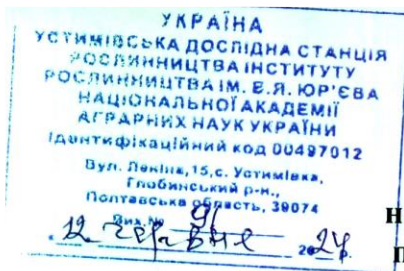 УКРАЇНА
УСТИМІВСЬКА ДОСЛІДНА СТАНЦІЯ
РОСЛИННИЦТВА ІНСТИТУТУ
РОСЛИННИЦТВА ІМ. В.Я. ЮР'ЄВА
НАЦІОНАЛЬНОЇ АКАДЕМІЇ
АГРАРНИХ НАУК УКРАЇНИ
Ідентифікаційний код 00497012
Вул. Леніна, 15, с. Устимівка,
Глобинський р-н.,
Полтавська область, 39074
Вих.№ 91
12 червня 2024 р.
Н
П